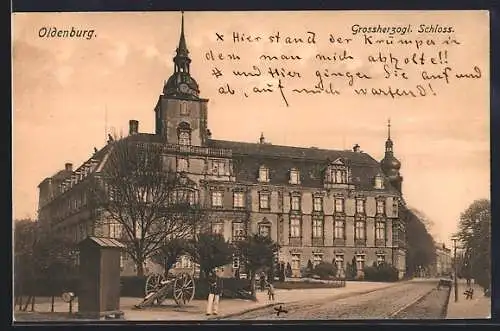 Oldenburg.
Grossherzogl. Schloss.
× Hier stand der Krümper in
dem man mich abholte!!
× und hier gingen Sie auf und
ab, auf mich wartend!